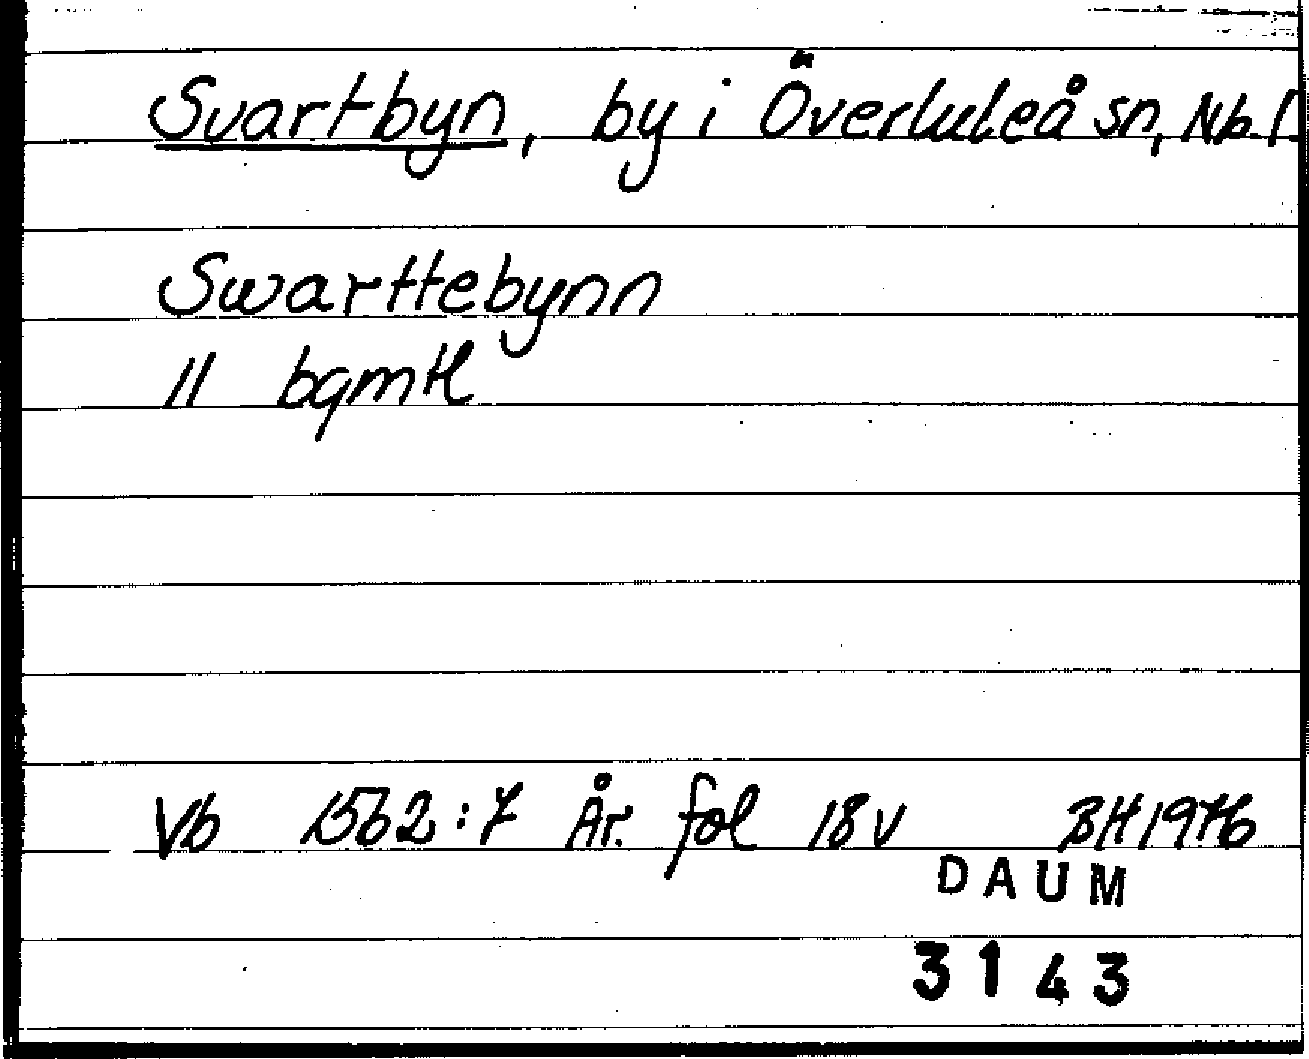 Svartbyn, by i Överluleå sn, Nb. l.
Swarttebynn
11 bgmtl
Vb 1562:7 År. fol 18v BH 1976
DAUM
3143